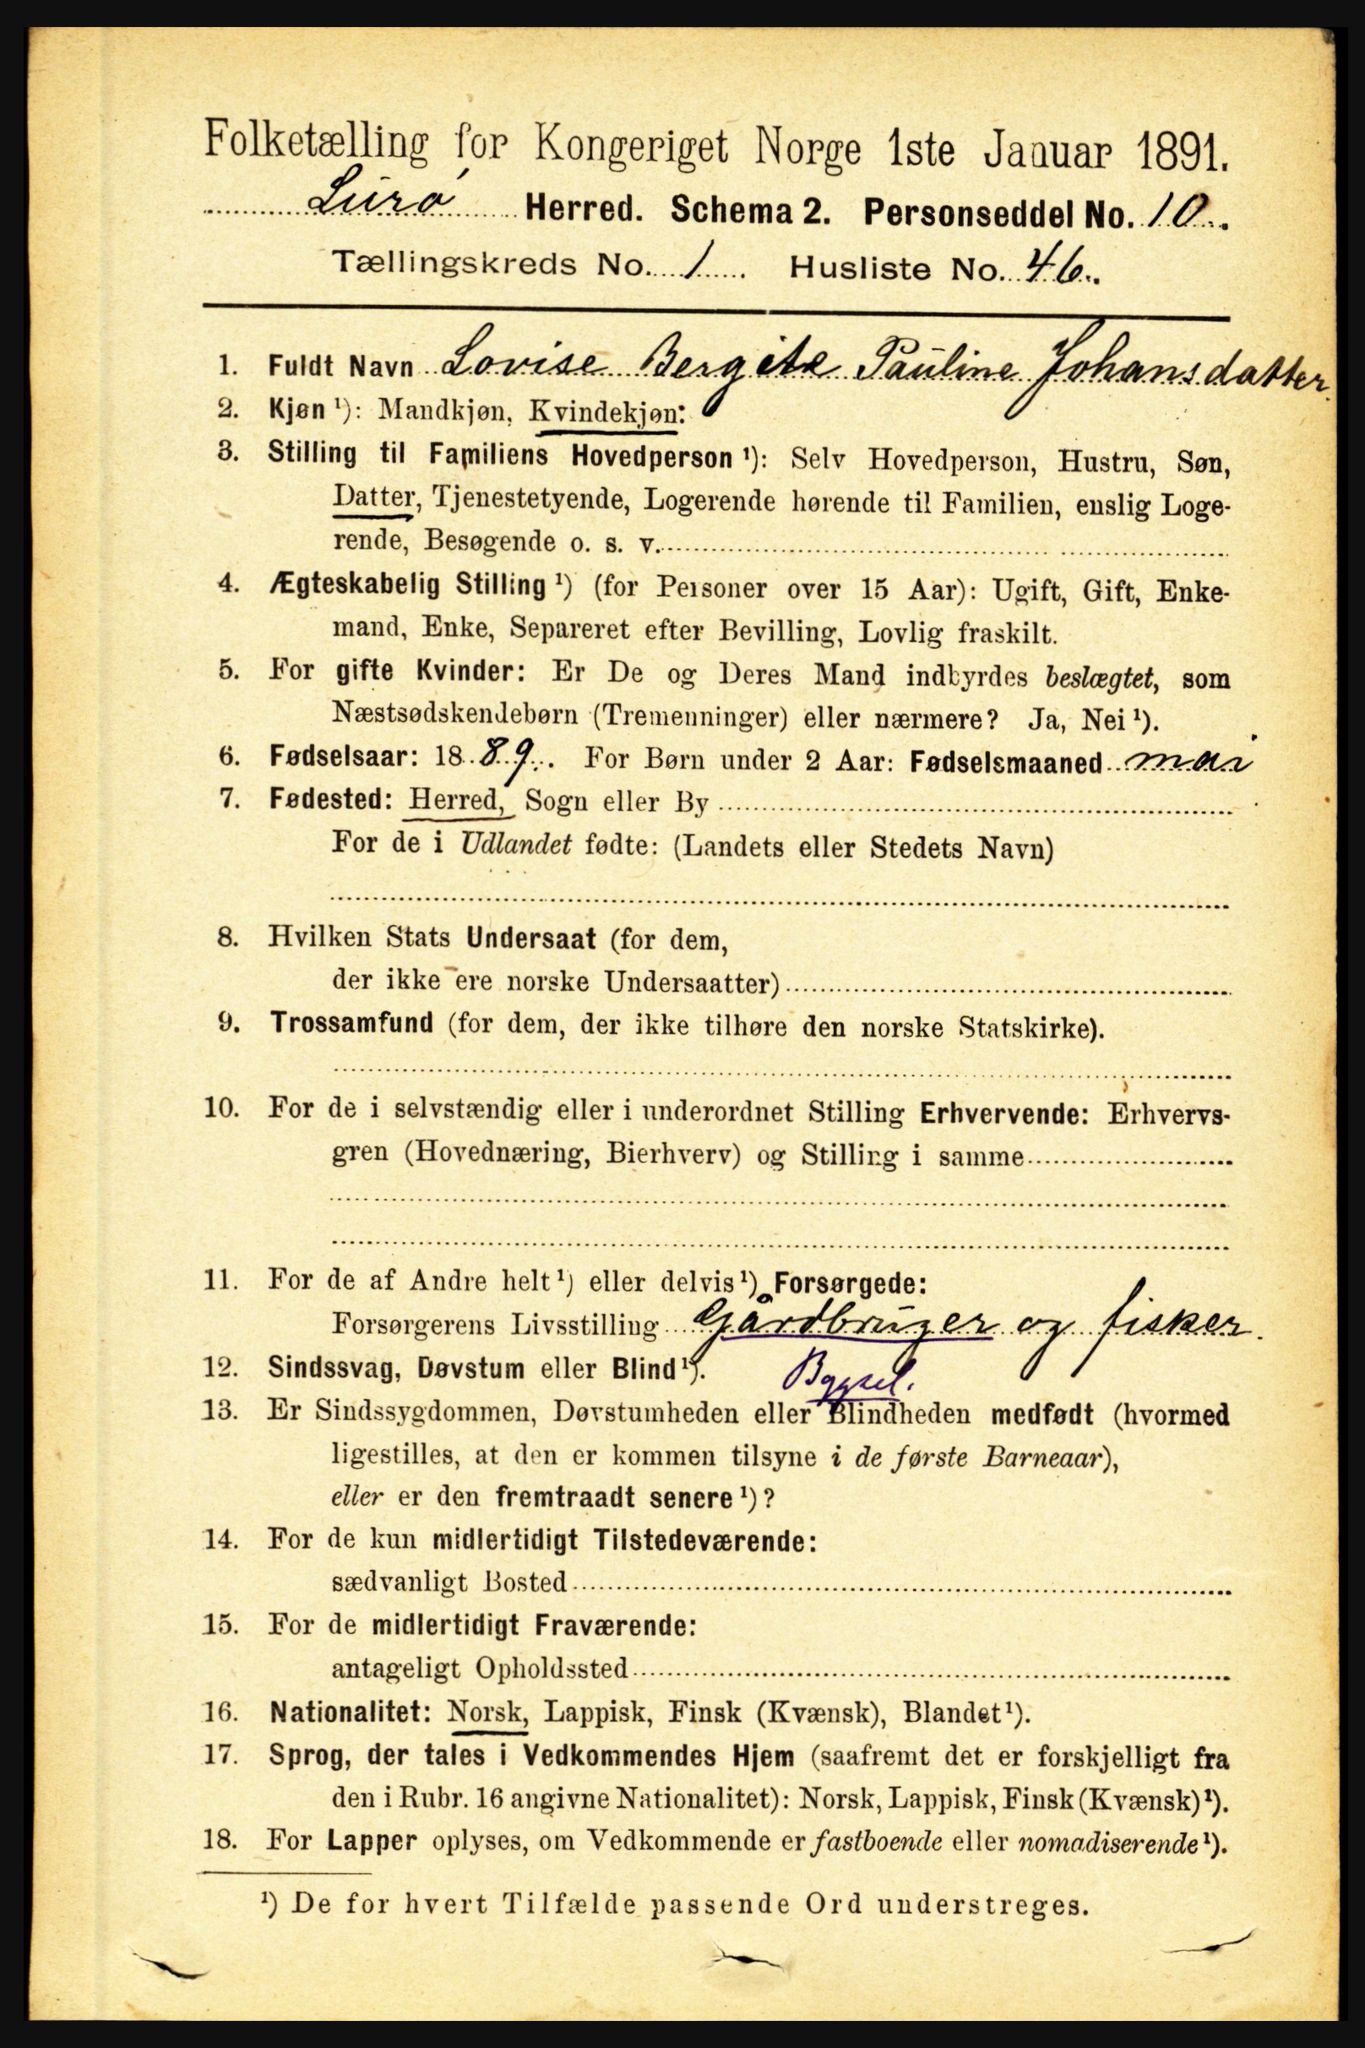 Folketælling for Kongeriget Norge 1ste Januar 1891.
Lurø Herred. Schema 2. Personseddel No. 10.
Tællingskreds No. 1. Husliste No. 46.
1. Fuldt Navn Lovise Bergite Pauline Johansdatter.
2. Kjøn ¹): Mandkjøn, Kvindekjøn.
3. Stilling til Familiens Hovedperson ¹): Selv Hovedperson, Hustru, Søn,
Datter, Tjenestetyende, Logerende hørende til Familien, enslig Loge-
rende, Besøgende o. s. v.
4. Ægteskabelig Stilling ¹) (for Personer over 15 Aar): Ugift, Gift, Enke-
mand, Enke, Separeret efter Bevilling, Lovlig fraskilt.
5. For gifte Kvinder: Er De og Deres Mand indbyrdes beslægtet, som
Næstsødskendebørn (Tremenninger) eller nærmere? Ja, Nei ¹).
6. Fødselsaar: 1889. For Børn under 2 Aar: Fødselsmaaned mai
7. Fødested: Herred, Sogn eller By
For de i Udlandet fødte: (Landets eller Stedets Navn)
8. Hvilken Stats Undersaat (for dem,
der ikke ere norske Undersaatter)
9. Trossamfund (for dem, der ikke tilhøre den norske Statskirke).
10. For de i selvstændig eller i underordnet Stilling Erhvervende: Erhvervs-
gren (Hovednæring, Bierhverv) og Stilling i samme
11. For de af Andre helt ¹) eller delvis ¹) Forsørgede:
Forsørgerens Livsstilling Gårdbruger og fisker.
12. Sindssvag, Døvstum eller Blind ¹). Bygsel.
13. Er Sindssygdommen, Døvstumheden eller Blindheden medfødt (hvormed
ligestilles, at den er kommen tilsyne i de første Barneaar),
eller er den fremtraadt senere ¹)?
14. For de kun midlertidigt Tilstedeværende:
sædvanligt Bosted
15. For de midlertidigt Fraværende:
antageligt Opholdssted
16. Nationalitet: Norsk, Lappisk, Finsk (Kvænsk), Blandet ¹).
17. Sprog, der tales i Vedkommendes Hjem (saafremt det er forskjelligt fra
den i Rubr. 16 angivne Nationalitet): Norsk, Lappisk, Finsk (Kvænsk) ¹).
18. For Lapper oplyses, om Vedkommende er fastboende eller nomadiserende ¹).
¹) De for hvert Tilfælde passende Ord understreges.